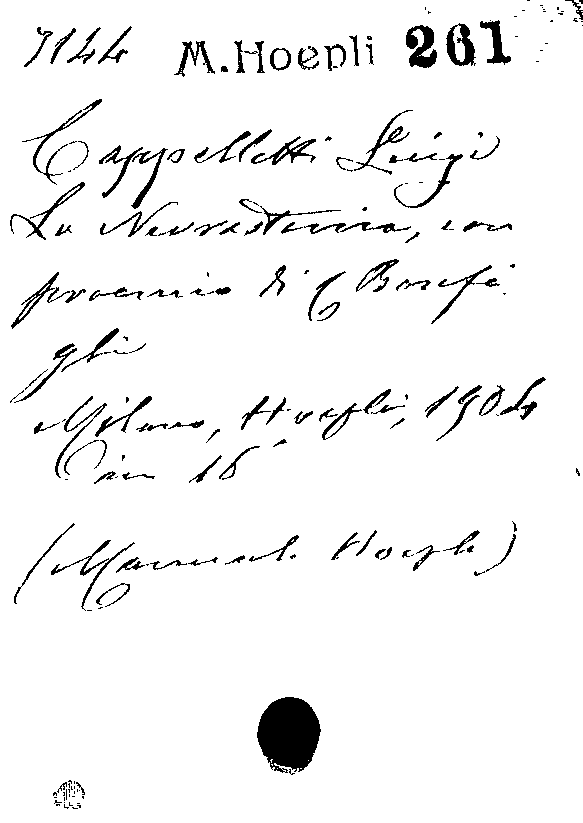 7144 M. Hoepli 261
Cappelletti Luigi
La Neurastenia, con
proemio di C Bonfi
gli
Milano, Hoepli, 1904
in 16°
(Manual. Hoepli)